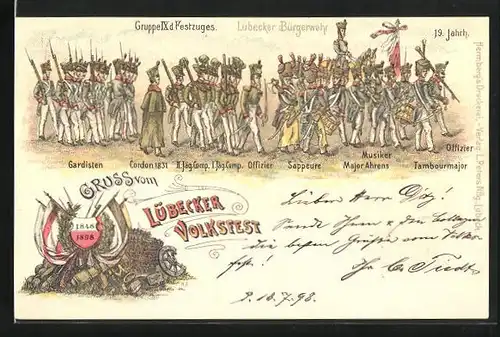 Gruppe IX d Festzuges. Lübecker Bürgerwehr 19. Jahrh.
Gardisten Cordon 1831 II Jäg. Comp. I Jäg. Comp. Offizier Sappeure Musiker Major Ahrens Tambourmajor Offizier
GRUSS vom
LÜBECKER
VOLKSFEST
1848
1898
Lieber Herr
Sendt Ihnen &
die besten Grüße vom
fest!
Ihr C. Tiedt
10.7.98.